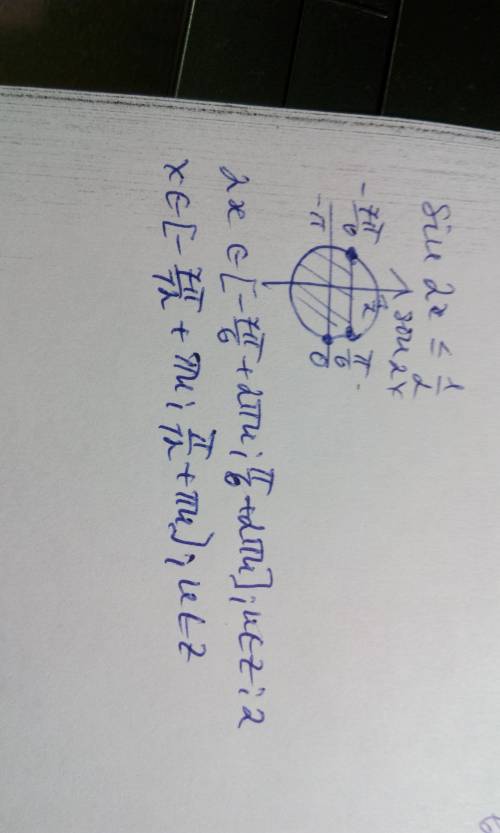 Sin 2x ≤ 1/2
sin 2x
-7π/6
π/2
π/6
-π
0
2x ∈ [-7π/6 + 2πn; π/6 + 2πn]; n ∈ Z : 2
x ∈ [-7π/12 + πn; π/12 + πn]; n ∈ Z